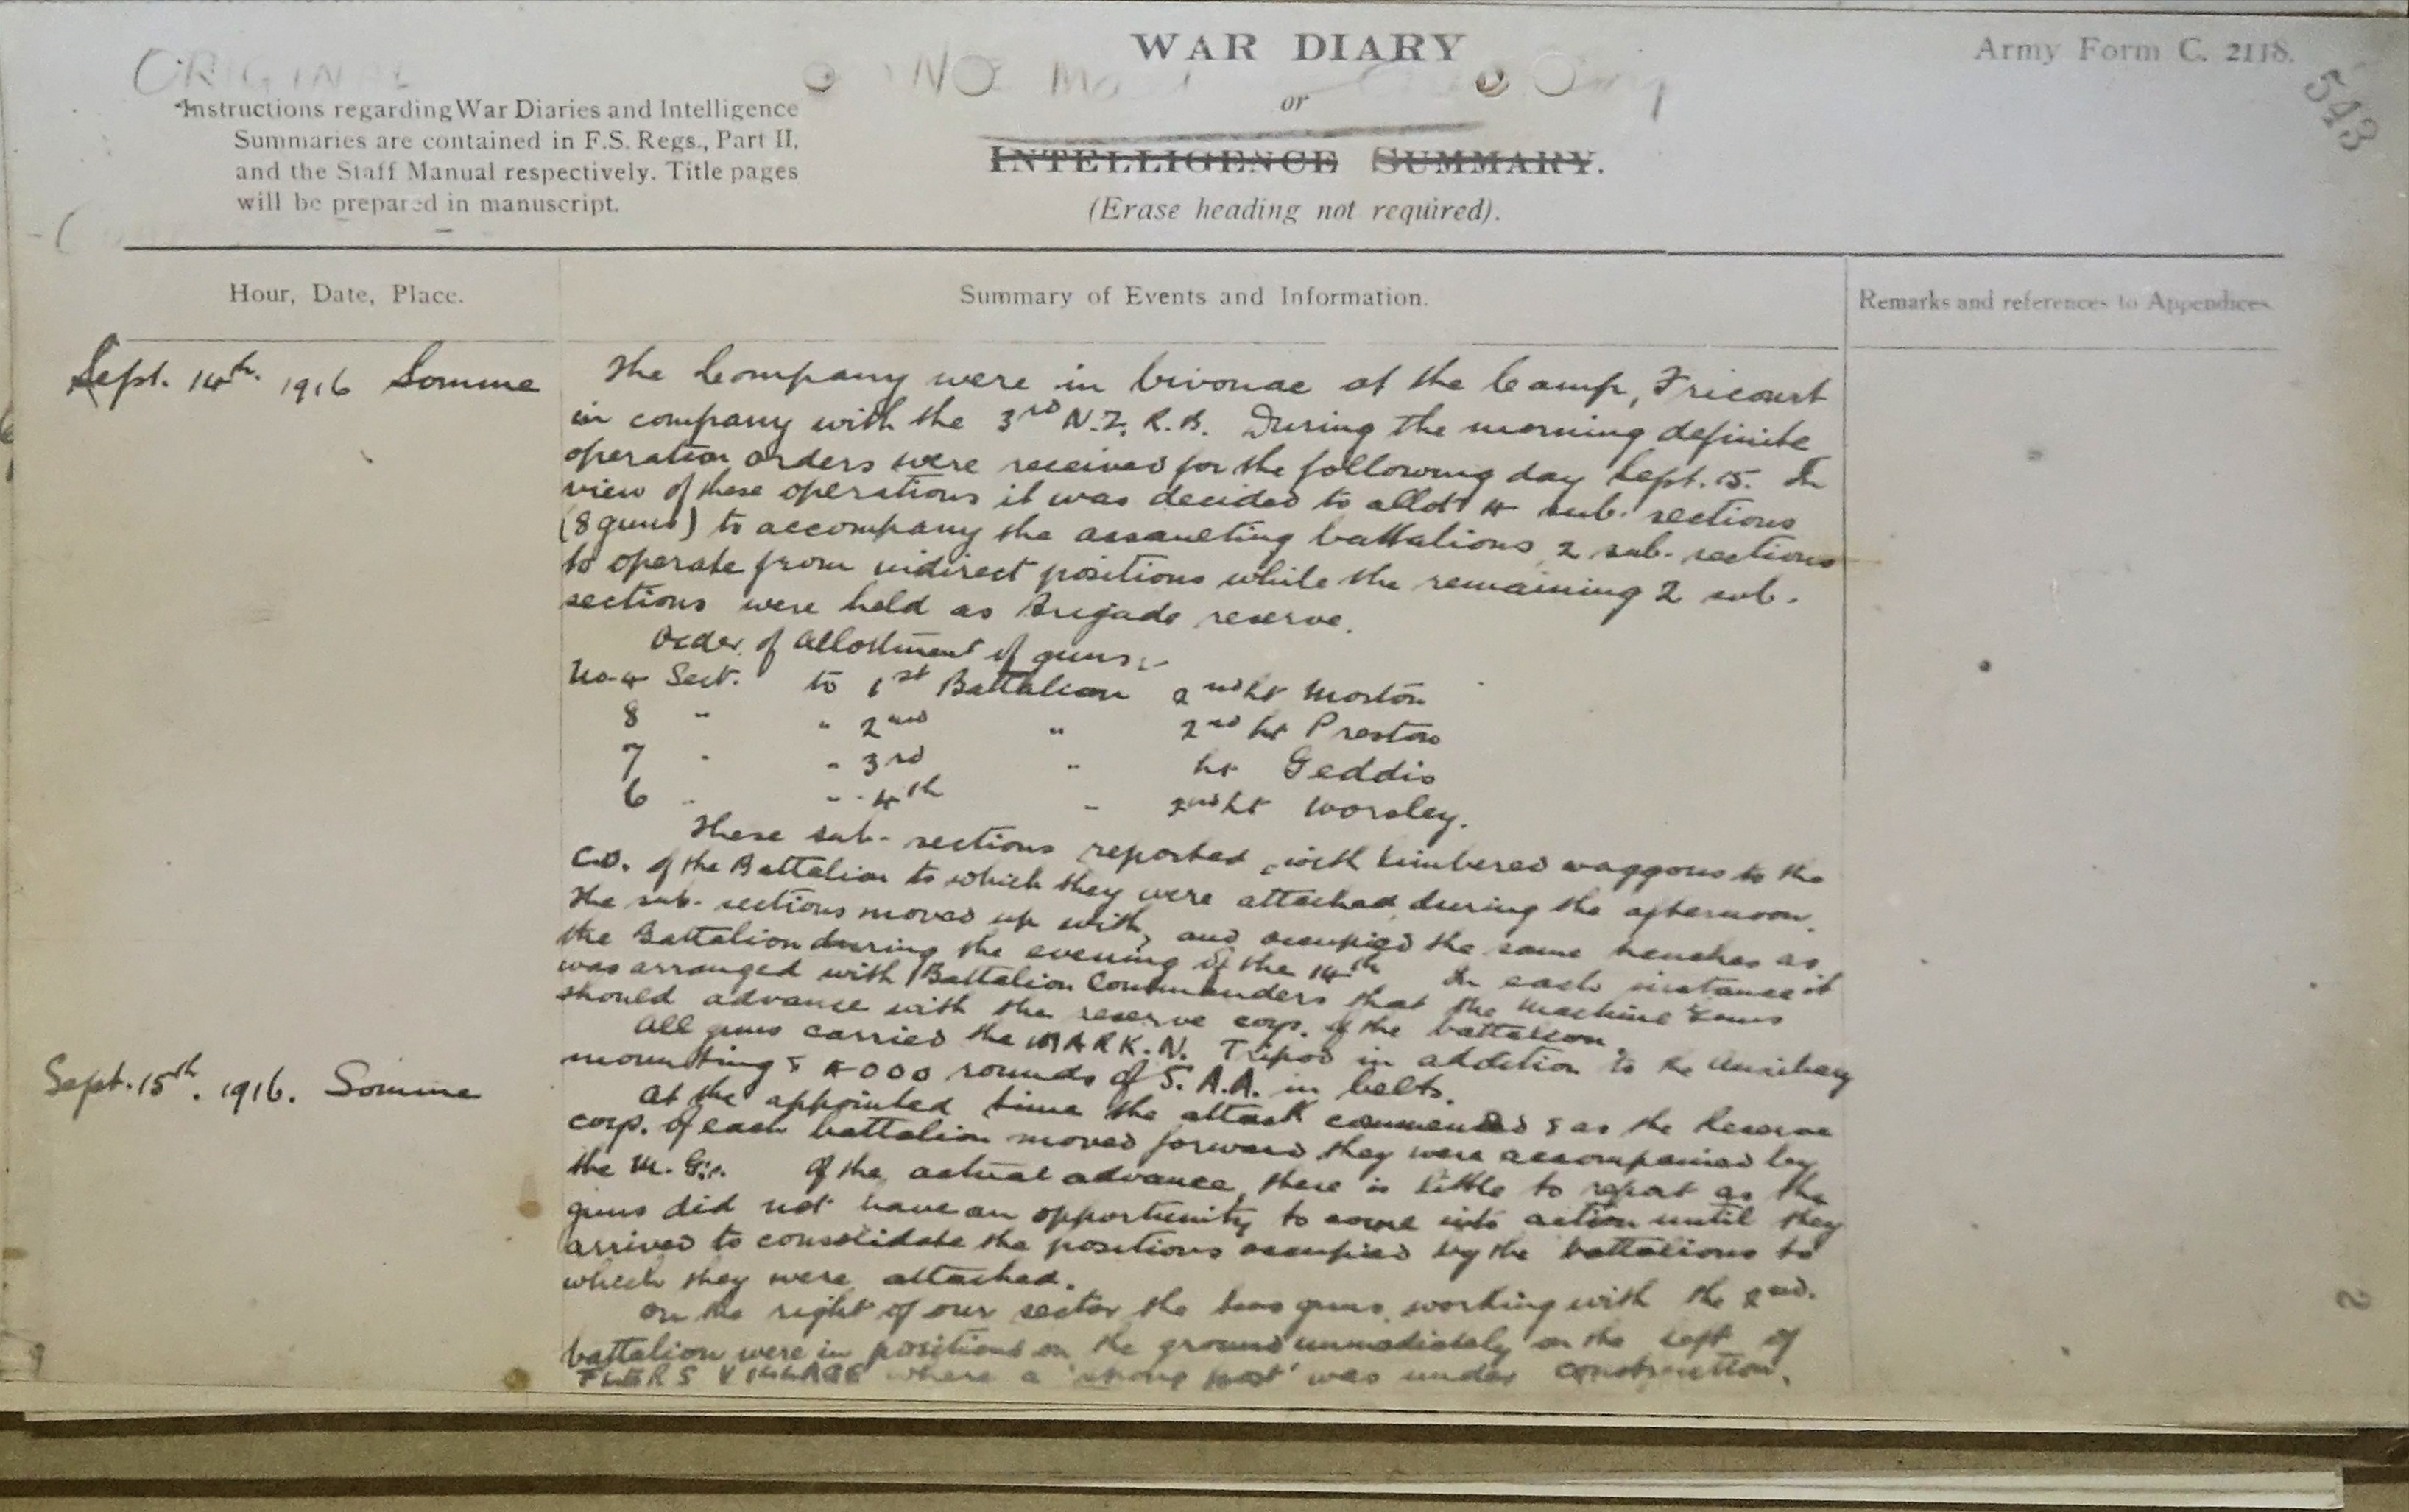 ORIGINAL
WAR DIARY
Army Form C. 2118.
543
or
INTELLIGENCE SUMMARY.
(Erase heading not required).
Instructions regarding War Diaries and Intelligence
Summaries are contained in F.S. Regs., Part II,
and the Staff Manual respectively. Title pages
will be prepared in manuscript.
Hour, Date, Place.
Summary of Events and Information.
Remarks and references to Appendices.
Sept. 14th. 1916 Somme
The Company were in bivouac at the Camp, Fricourt
in company with the 3rd N.Z. R.B. During the morning definite
operation orders were received for the following day Sept. 15. In
view of these operations it was decided to allot 4 sub. sections
(8 guns) to accompany the assaulting battalions 2 sub-sections
to operate from indirect positions while the remaining 2 sub.
sections were held as Brigade reserve.
Order of allotment of guns:-
No 4 Sect. to 1st Battalion 2nd Lt Morton
8 " " 2nd " 2nd Lt Preston
7 " " 3rd " Lt Geddis
6 " " 4th " 2nd Lt Worsley.
These sub-sections reported, with limbered waggons to the
C.O. of the Battalion to which they were attached during the afternoon.
The sub-sections moved up with, and occupied the same trenches as
the Battalion during the evening of the 14th In each instance it
was arranged with Battalion Commanders that the Machine Guns
should advance with the reserve coys. of the battalion.
All guns carried the MARK. IV. Tripod in addition to the Auxiliary
mounting & 4000 rounds of S.A.A. in belts.
Sept. 15th. 1916. Somme
At the appointed time the attack commenced & as the Reserve
coys. of each battalion moved forward they were accompanied by
the M.G's. Of the actual advance, there is little to report as the
guns did not have an opportunity to come into action until they
arrived to consolidate the positions occupied by the battalions to
which they were attached.
On the right of our sector the two guns working with the 2nd.
battalion were in positions on the ground immediately on the left of
FLERS VILLAGE where a 'strong post' was under construction.
2